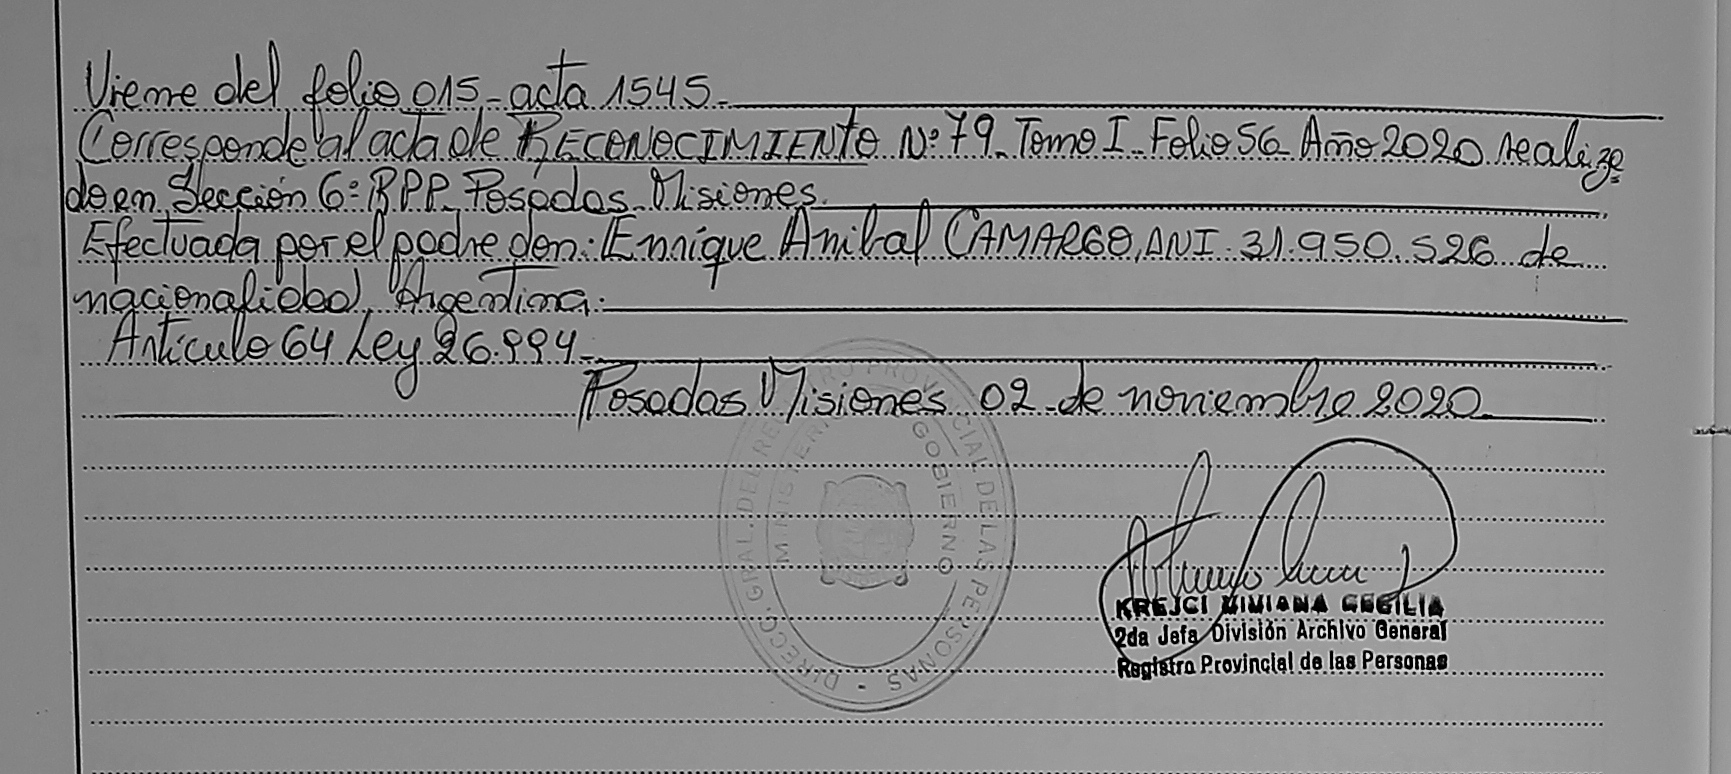 Viene del folio 015 - acta 1545.
Corresponde al acta de RECONOCIMIENTO Nº 79 - Tomo I - Folio 56 Año 2020 realiza
do en Sección 6ª RPP - Posadas Misiones.
Efectuada por el padre don: Enrique Anibal CAMARGO, DNI. 31.950.526 de
nacionalidad Argentina.
Artículo 64 Ley 26.994.
Posadas Misiones 02 de noviembre 2020
DIRECC. GRAL. DEL REGISTRO PROVINCIAL DE LAS PERSONAS -
MINISTERIO GOBIERNO
KREJCI VIVIANA CECILIA
2da Jefa División Archivo General
Registro Provincial de las Personas